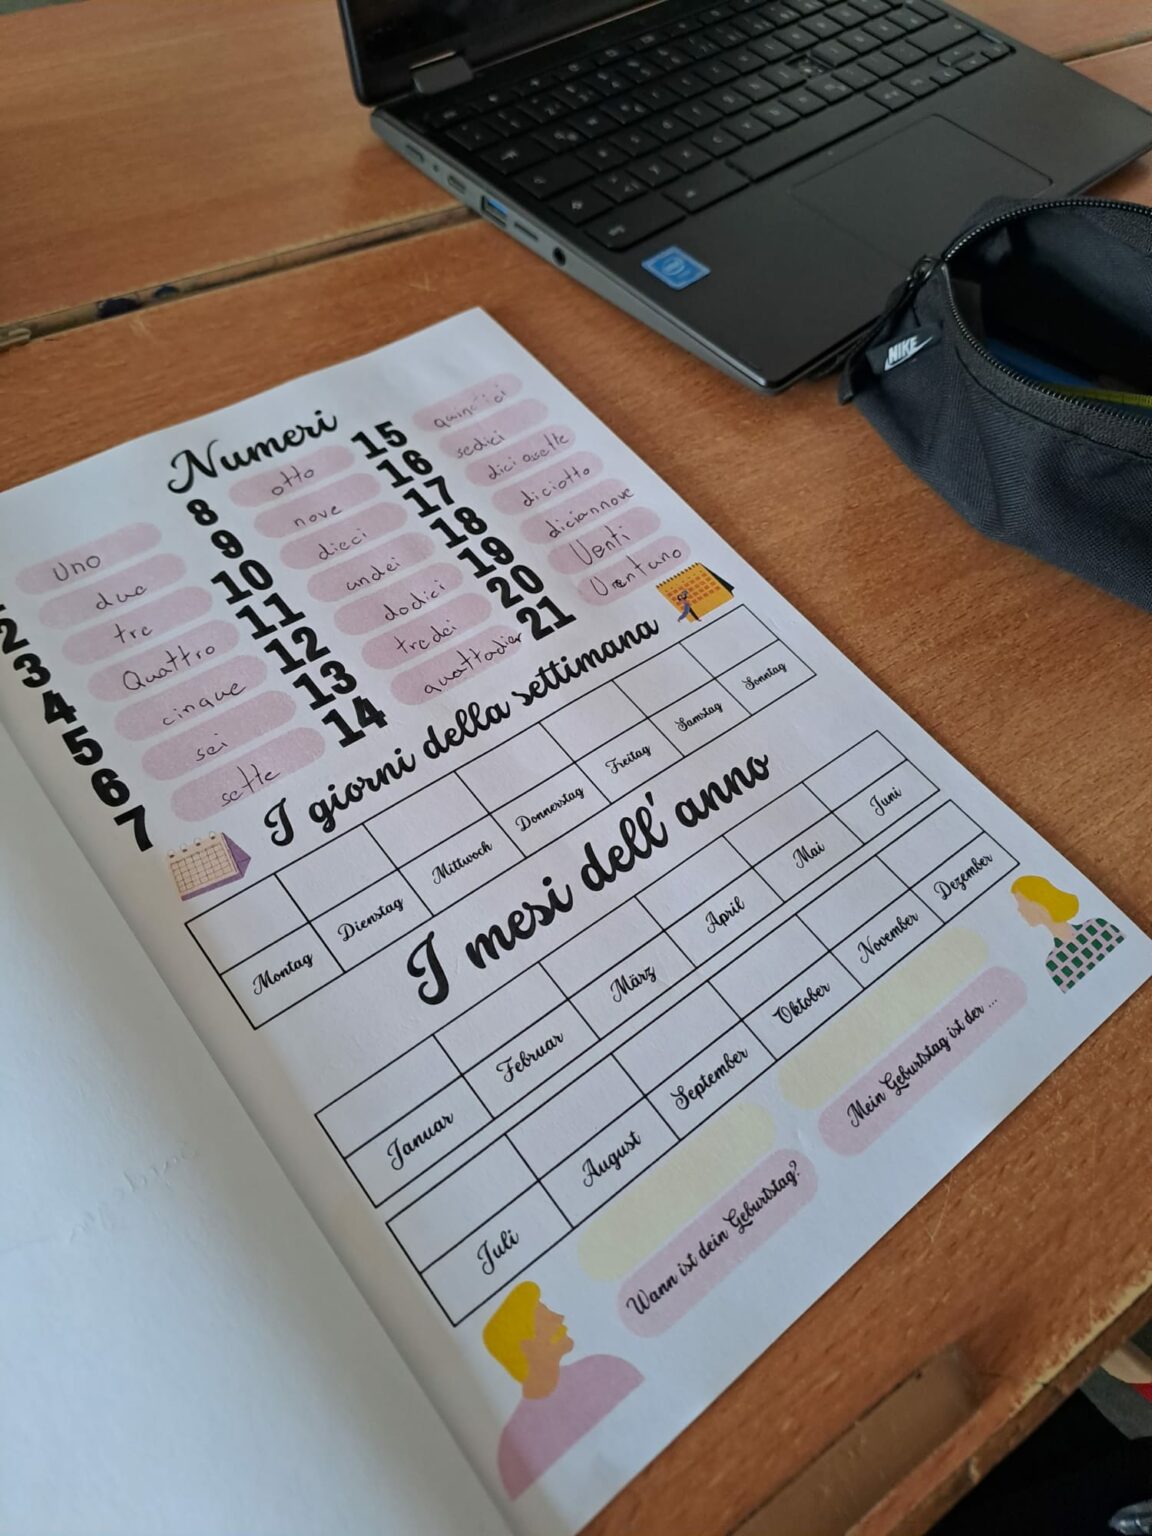 Numeri
uno
2 due
3 tre
4 Quattro
5 cinque
6 sei
7 sette
8 otto
9 nove
10 dieci
11 undei
12 dodici
13 tredei
14
15
16 sedici
17 dici assette
18 diciotto
19 diciannove
20 Venti
21 Ventuno
I giorni della settimana
Montag Dienstag Mittwoch Donnerstag Freitag Samstag Sonntag
I mesi dell'anno
Januar Februar März April Mai Juni
Juli August September Oktober November Dezember
Wann ist dein Geburtstag?
Mein Geburtstag ist der ...
NIKE